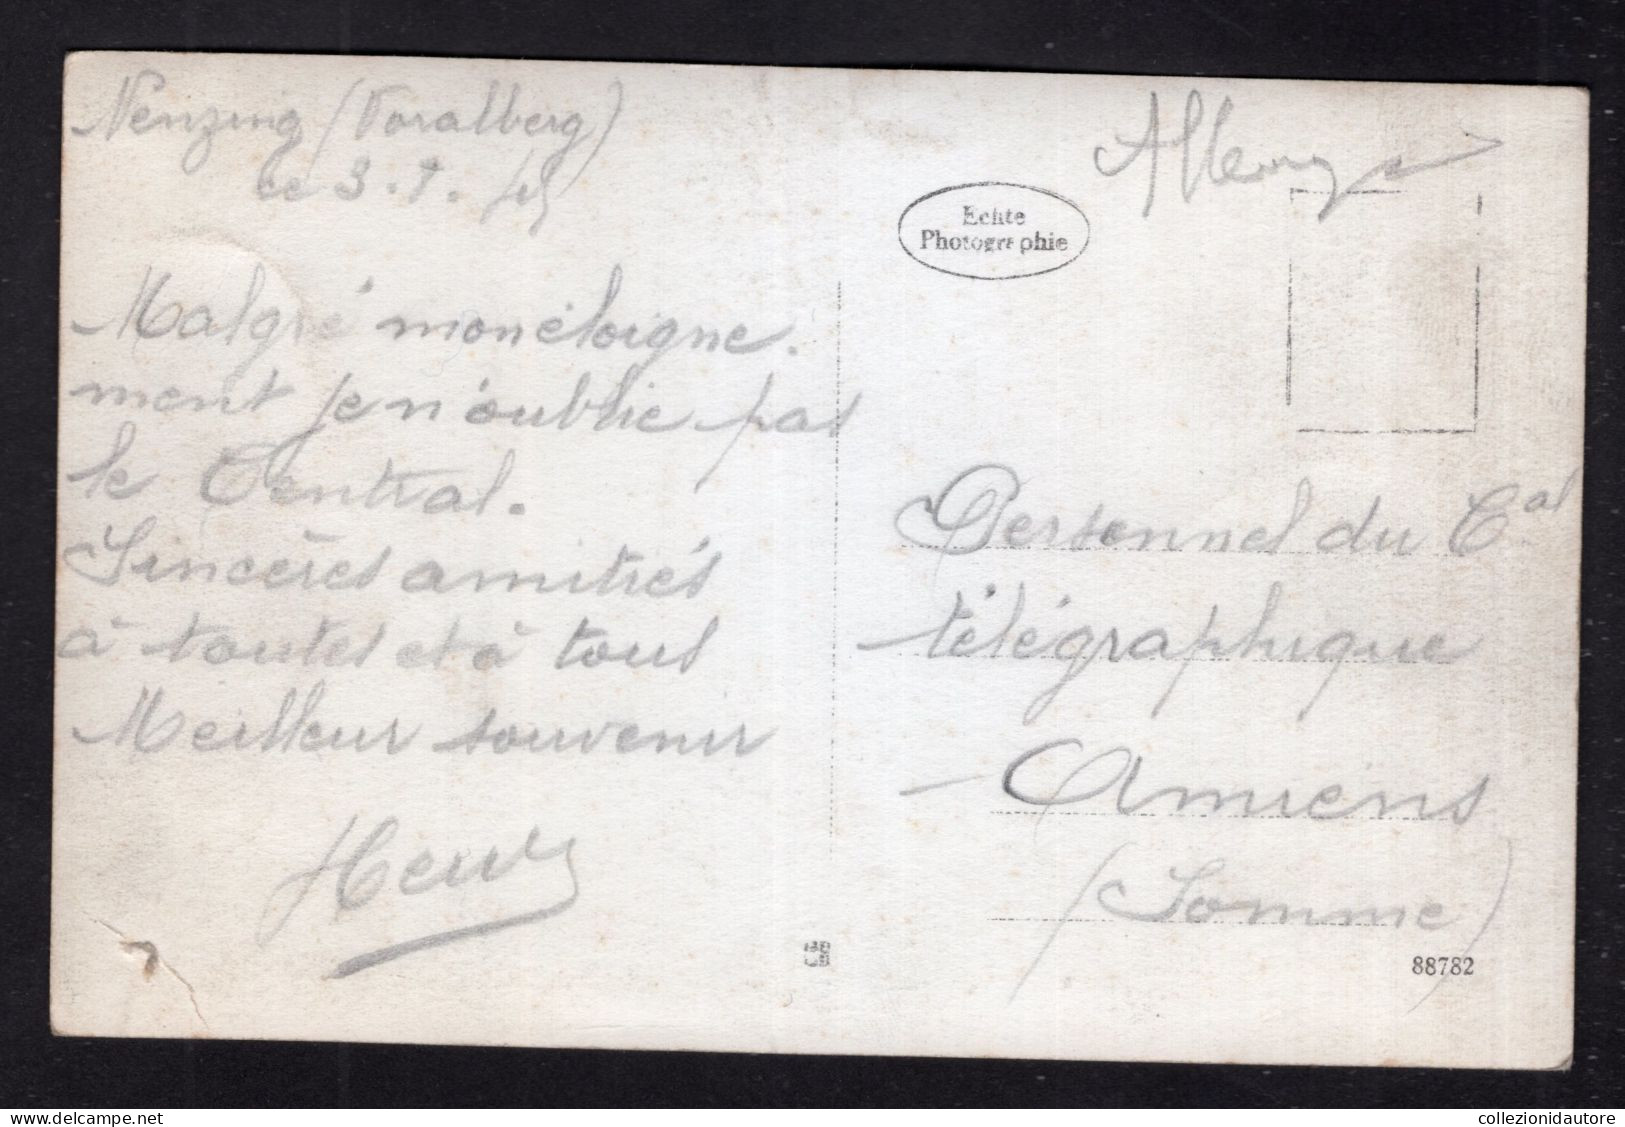 Nenzing (Voralberg)
le 3.9.45
Malgré mon éloigne-
ment je n'oublie pas
le Central.
Sincères amitiés
à toutes et à tous
Meilleur souvenir
Echte
Photographie
Personnel du Cal
télégraphique
Amiens
(Somme)
88782
collezionidautore